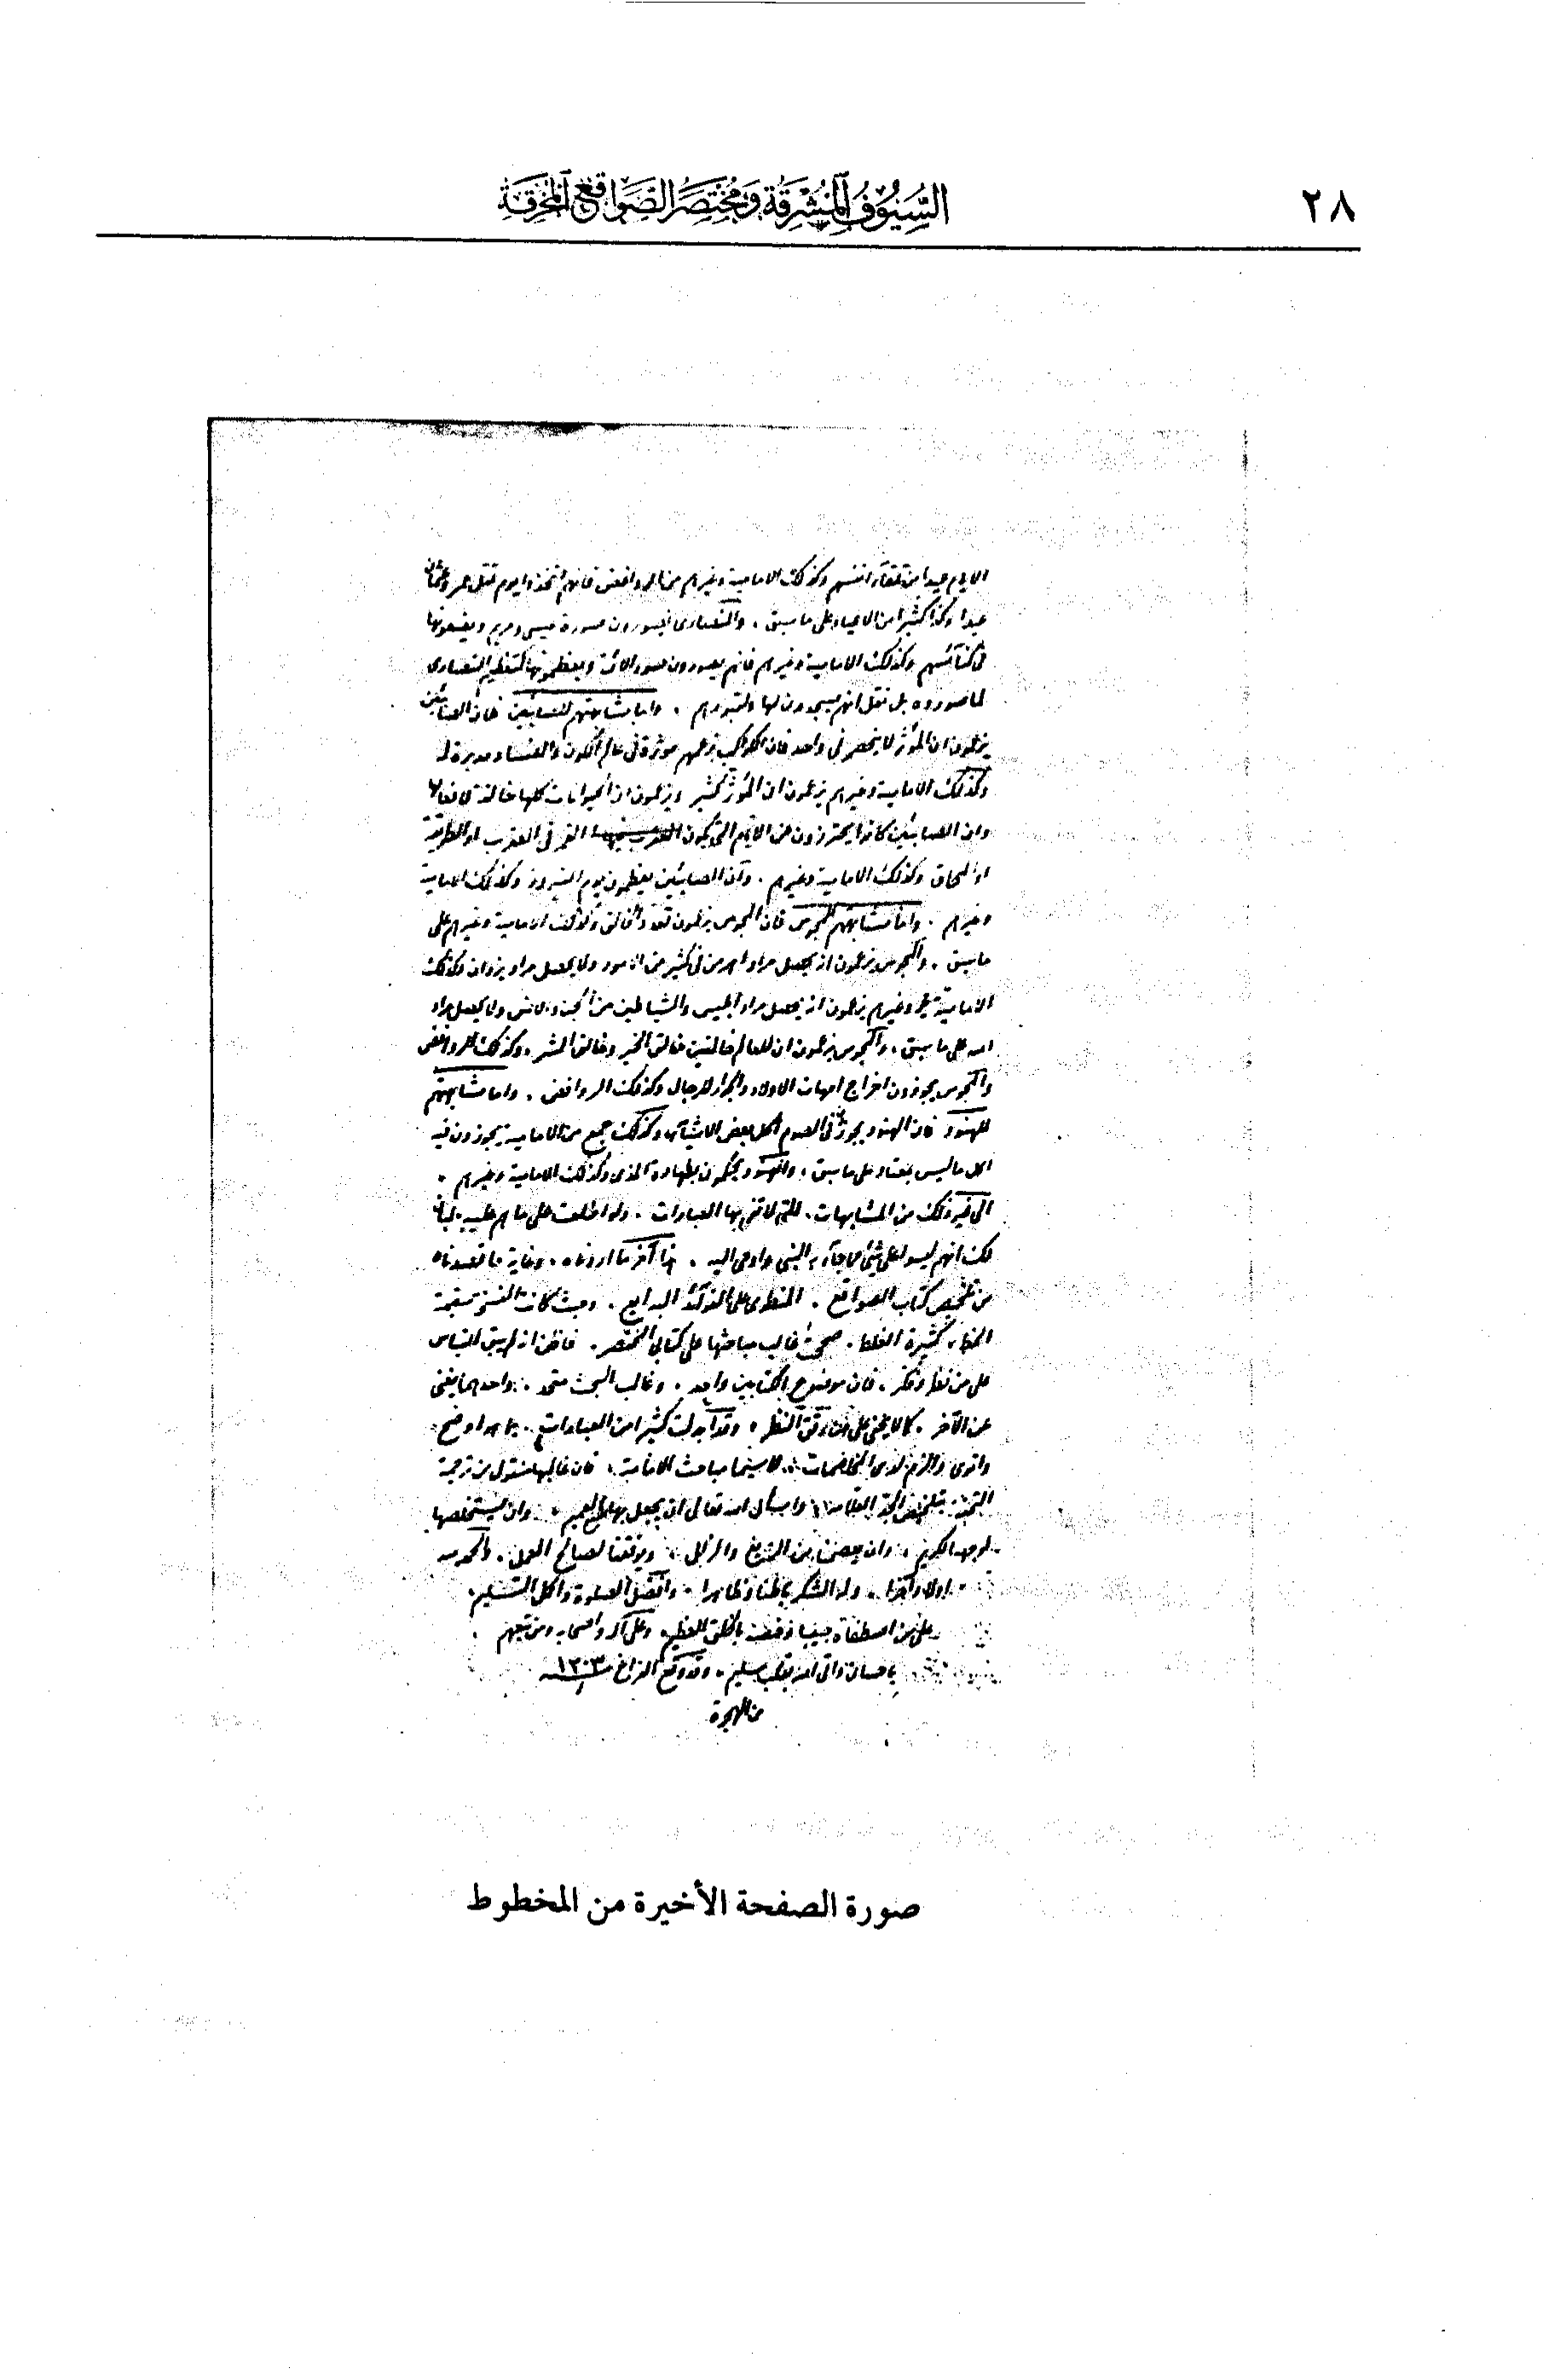 ٢٨
السيوف المشرقة ومختصر الصواقع المحرقة
الايام عيدا من تلقاء انفسهم وكذلك الامامية وغيرهم من الروافض فانهم اتخذوا يوم قتل عمر وعثمان
عيدا وكذا كثيرا من الاعياد على ما سبق . والنصارى يصورون صورة عيسى ومريم ويضعونها
في كنائسهم وكذلك الامامية وغيرهم فانهم يصورون صور الائمة ويعظمونها كتعظيم النصارى
لما صوروه بل نقل انهم يسجدون لها ولقبورهم . واما مشابهتهم للصابئين فان الصابئين
يزعمون ان المؤثر لا ينحصر في واحد فان الكواكب بزعمهم مؤثرة في عالم الكون والفساد مدبرة له
وكذلك الامامية وغيرهم يزعمون ان المؤثر كثير ويزعمون ان الحيوانات كلها خالقة لافعالها
وان الصابئين كانوا يحترزون عن الايام التي يكون القمر في العقرب او الطريقة
او المحاق وكذلك الامامية وغيرهم . وان الصابئين يعظمون يوم النيروز وكذلك الامامية
وغيرهم . واما مشابهتهم للمجوس فان المجوس يزعمون تعدد الخالق وكذلك الامامية وغيرهم على
ما سبق . والمجوس يزعمون انه يحصل مراد اهرمن في كثير من الامور ولا يحصل مراد يزدان وكذلك
الامامية وغيرهم يزعمون انه يحصل مراد ابليس والشياطين من الجن والانس ولا يحصل مراد
الله على ما سبق . والمجوس يزعمون ان للعالم خالقين خالق الخير وخالق الشر . وكذلك الروافض
والمجوس يجوزون اخراج امهات الاولاد والجوار للرجال وكذلك الروافض . واما مشابهتهم
للهنود فان الهنود يجوز في الصوم اكل بعض الاشياء وكذلك جمع من الامامية يجوزون فيه
اكل ما ليس بمعتاد على ما سبق . والهنود يحكمون بطهارة المذي وكذلك الامامية وغيرهم .
الى غير ذلك من المشابهات . التي لا تفي بها العبارات . ولو اطلعت على ما هم عليه لبان
لك انهم ليسوا على شيء مما جاء به النبي واوحي اليه . هذا آخر ما اردناه . وغاية ما قصدناه
من تلخيص كتاب الصواقع . المنطوي على الفوائد البدايع . وحيث كانت النسخ سقيمة
الخط . كثيرة الغلط . صححت غالب مباحثها على كتابي المختصر .
على من نظر وفكر . فان موضوع الكتابين واحد . وغالب البحث متحد . واحدهما يغني
عن الآخر . كما لا يخفى على من دقق النظر . وقد ابدلت كثيرا من العبارات . بما هو اوضح
واقوى والزم لدى المخاصمات . لا سيما مباحث الامامة . فان غالبها منقول من ترجمة
التحفة . واسأل الله تعالى ان يجعل بها النفع العميم . وان يستخلصها
لوجهه الكريم . وان يعصمنا من الزيغ والزلل . ويوفقنا لصالح العمل . والحمد لله
اولا وآخرا . وله الشكر باطنا وظاهرا . وافضل الصلوة واكمل التسليم .
على من اصطفاه حبيبا وخصه بالخلق العظيم . وعلى آله واصحابه ومن تبعهم
باحسان واتى الله بقلب سليم . وقد وقع الفراغ سنة ١٣٠٣
من الهجرة
صورة الصفحة الأخيرة من المخطوط